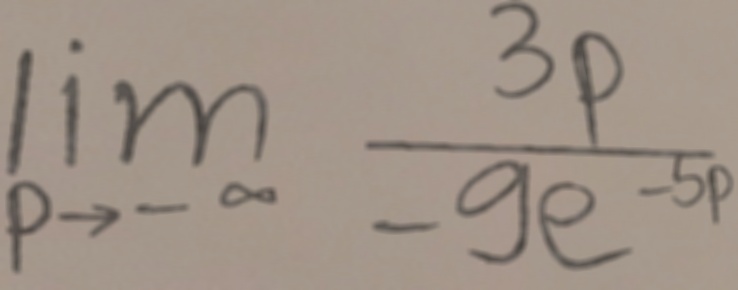 \lim_{p \to -\infty} \frac{3p}{-9e^{-5p}}